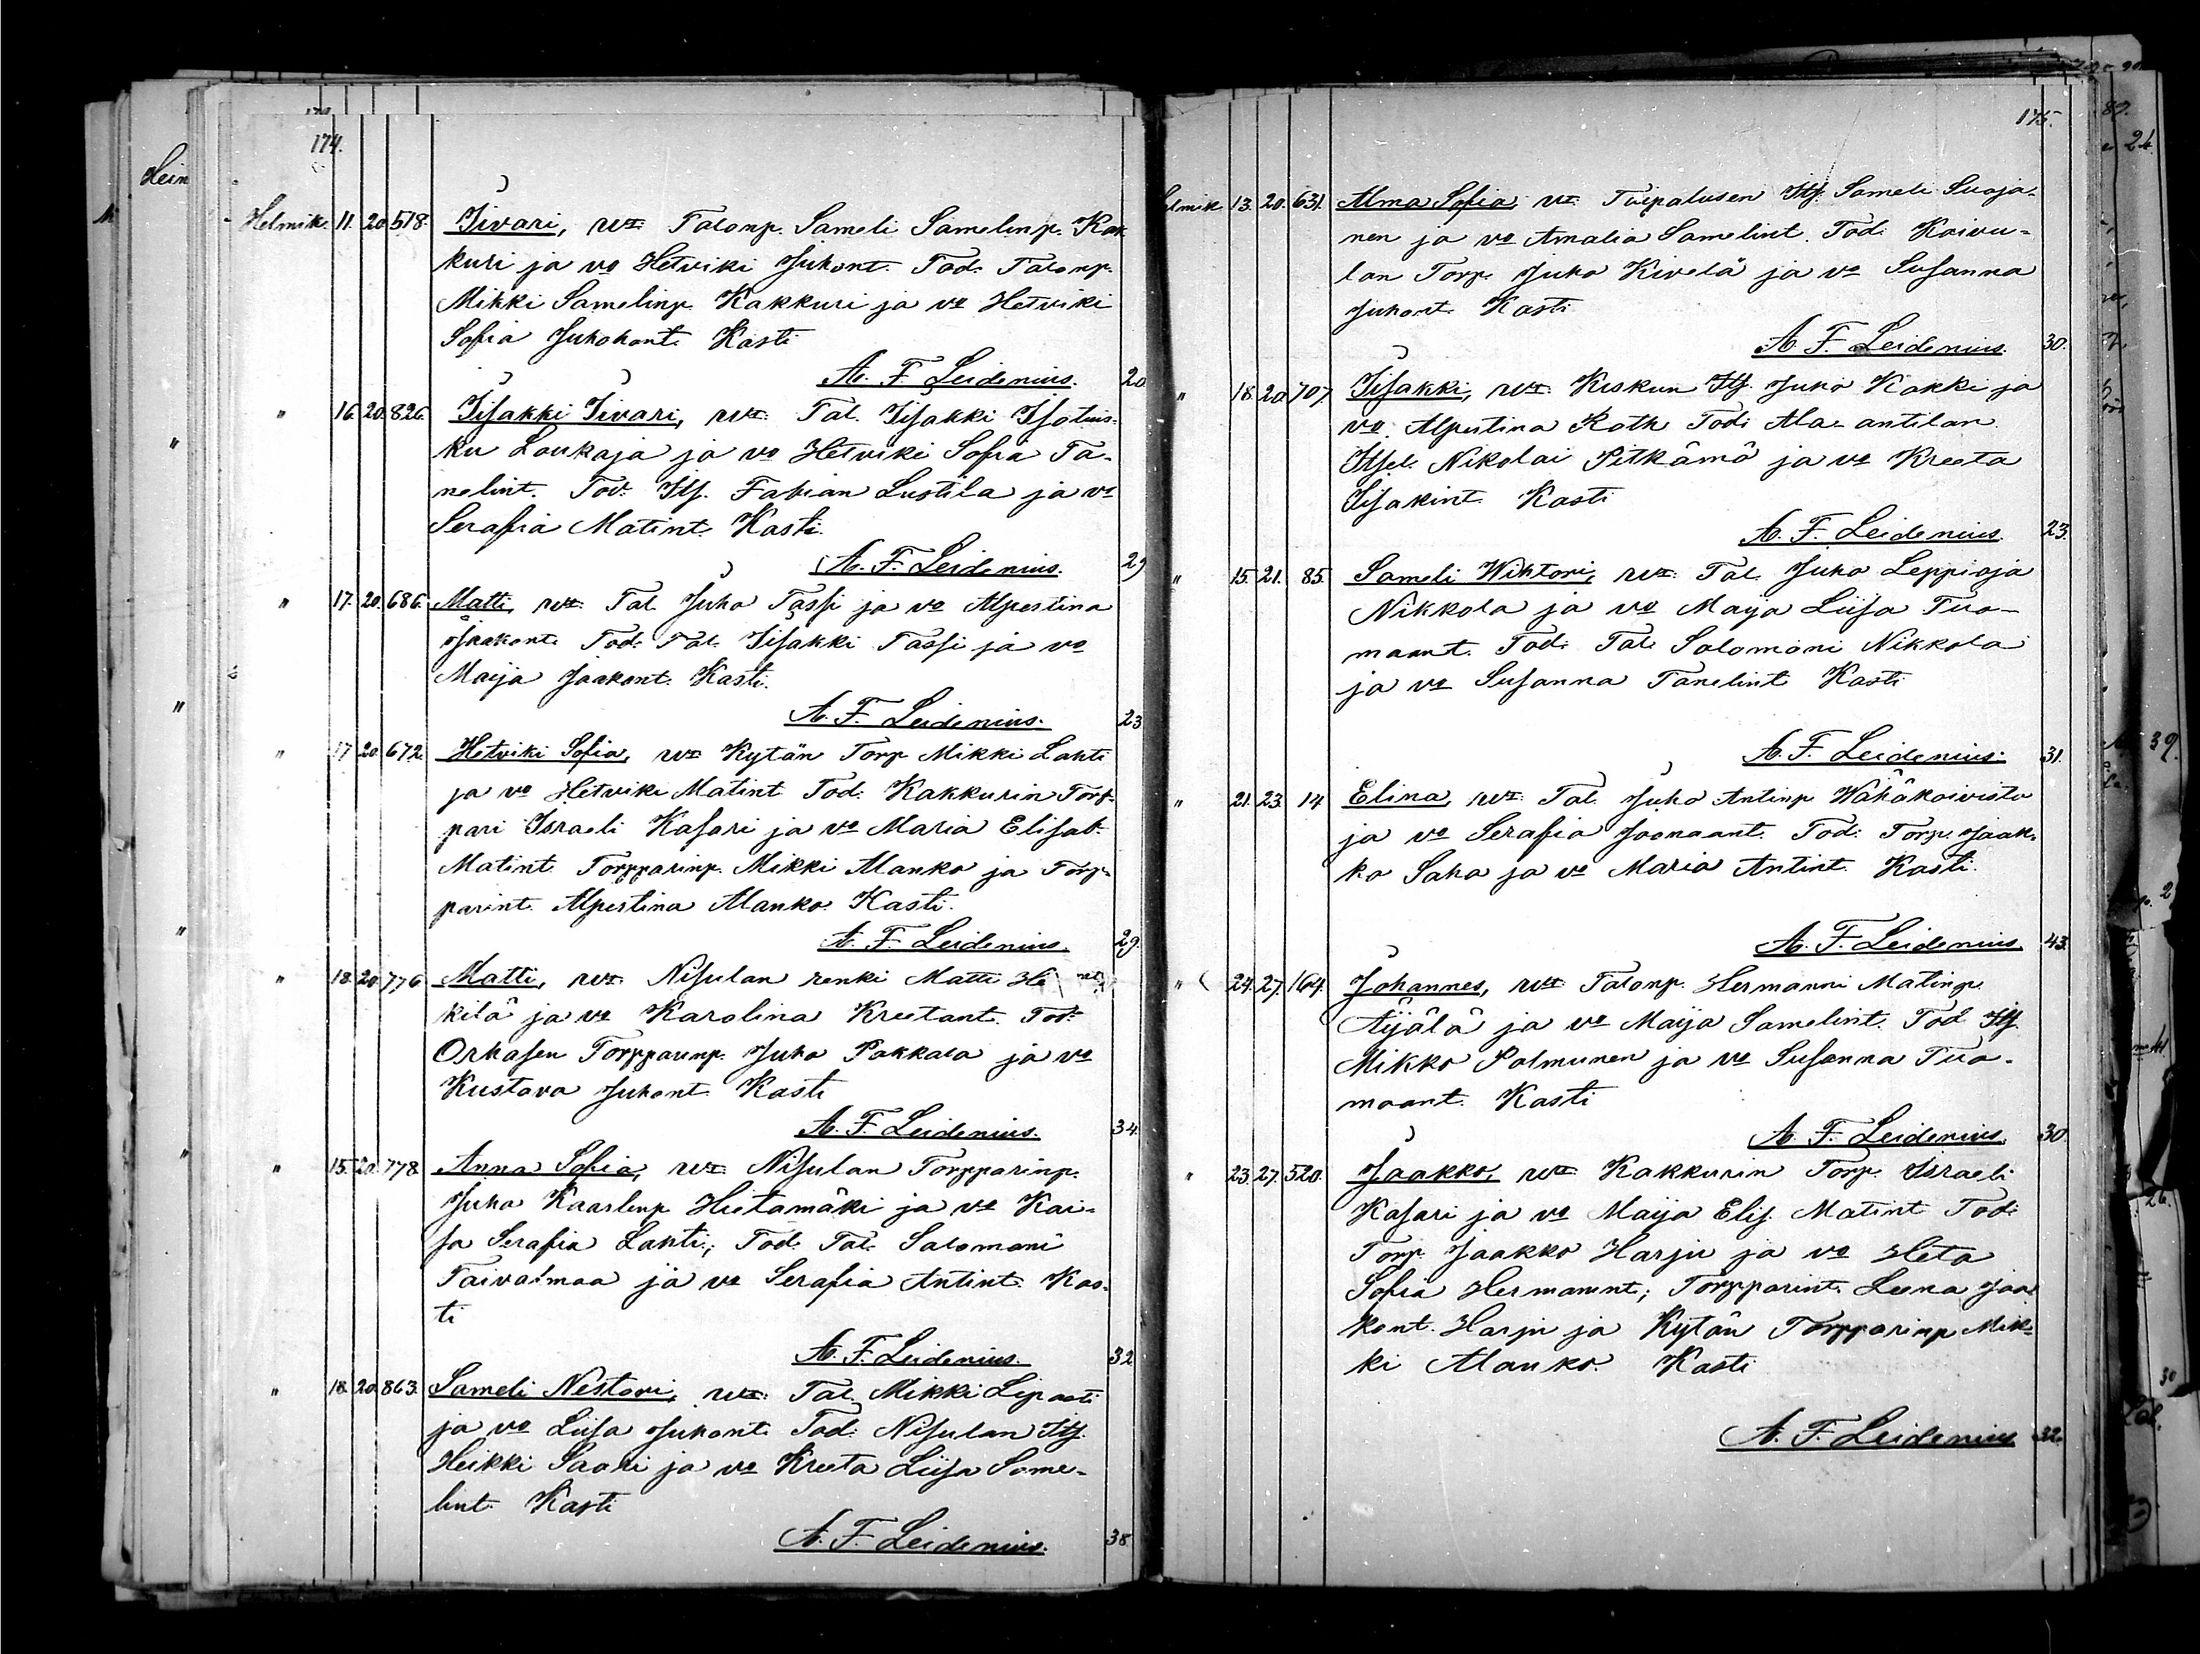 174.
Helmik. 11. 20. 518. Iivari, vt: Talonp. Sameli Samelinp. Kak
kuri ja vo Hetviki Juhont. Tod: Talonp.
Mikki Samelinp. Kakkuri ja vo Hetviki
Sofia Juhohont. Kasti
A. F. Leidenius. 20
" 16. 20. 826. Iisakki Iivari, vt: Tal. Iisakki Isoluis-
ku Laukaja ja vo Hetviki Sofia Ta-
nelint. Tod: Itts. Fabian Lustila ja vo
Serafia Matint. Kasti.
A. F. Leidenius. 29
" 17. 20. 686. Matti, vt: Tal. Juho Tassi ja vo Alpestina
Jaakont. Tod: Tal. Iisakki Tassi ja vo
Maija Jaakont. Kasti.
A. F. Leidenius. 23
" 17 20. 672. Hetviki Sofia, vt: Kytän Torp Mikki Lahti
ja vo Hetviki Matint Tod: Kakkurin Torp-
pari Israeli Kasari ja vo Maria Elisab.
Matint. Torpparinp. Mikki Alanko ja Torp-
parint. Alpestina Alanko. Kasti.
A. F. Leidenius. 29.
" 18. 20. 776 Matti, vt: Nisulan renki Matti He
kilä ja vo Karolina Kreetant. Tod:
Orhasen Torpparinp. Juho Pakkala ja vo
Kustava Juhont. Kasti
A. F. Leidenius. 34
" 15. 20. 778 Anna Sofia, vt: Nisulan Torpparinp.
Juho Kaarlenp Hietamäki ja vo Kai-
sa Serafia Lahti; Tod: Tal. Salomoni
Taivalmaa ja vo Serafia Antint. Kas-
ti
A. F. Leidenius. 32
" 18. 20. 863. Sameli Nestori, vt: Tal. Mikki Lipasti
ja vo Liisa Juhont. Tod: Nisulan Itts.
Heikki Saari ja vo Kreeta Liisa Same-
lint. Kasti
A. F. Leidenius. 38
175.
elmik. 13. 20. 631. Alma Sofia, vt: Toipalusen Itts. Sameli Suoja-
nen ja vo Amalia Samelint. Tod: Koivu-
lan Torp. Juho Kivelä ja vo Susanna
Juhont. Kasti
A. F. Leidenius. 30.
" 18. 20. 707. Iisakki, vt: Keskun Itts. Juho Kakki ja
vo. Alpestina Koth. Tod: Ala-antilan
Itsel. Nikolai Pitkämö ja vo Kreeta
Iisakint. Kasti
A. F. Leidenius. 23.
" 15. 21. 85. Sameli Wihtori, vt: Tal. Juho Leppioja
Nikkola ja vo Maija Liisa Tuo-
maant. Tod: Tal. Salomoni Nikkola
ja vo Susanna Tanelint Kasti
A. F. Leidenius. 31.
" 21. 23. 14 Elina, vt: Tal. Juho Antinp Wähäkoivisto
ja vo Serafia Joonaant. Tod: Torp. Jaak-
ko Saha ja vo Maria Antint. Kasti.
A. F. Leidenius. 43.
" 24. 27. 164. Johannes, vt: Talonp. Hermanni Matinp.
Äijälä ja vo Maija Samelint. Tod Itts.
Mikko Palmunen ja vo Susanna Tuo-
maant. Kasti
A. F. Leidenius. 30
" 23. 27. 520. Jaakko, vt: Kakkurin Torp. Israeli
Kasari ja vo Maija Elis. Matint Tod:
Torp. Jaakko Harju ja vo Heta
Sofia Hermannt; Torpparint. Leena Jaa
kont. Harju ja Kytän Torpparinp Mik-
ki Alanko. Kasti
A. F. Leidenius 32.